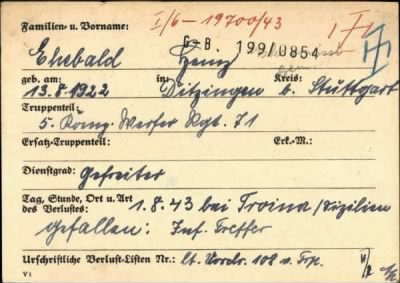 Familien- u. Vorname: I/6-19700/43
G-B 199/0854
Ehebald Heinz
geb. am: in: Kreis:
13.8.1922 Ditzingen b. Stuttgart
Truppenteil:
5. Komp. Werfer Rgt. 71
Ersatz-Truppenteil: Erk.-M.:
Dienstgrad: Gefreiter
Tag, Stunde, Ort u. Art
des Verlustes: 1.8.43 bei Troina/Sizilien
Gefallen: Inf. Treffer
Urschriftliche Verlust-Listen Nr.: lt. 108 v. Trp.
V 1